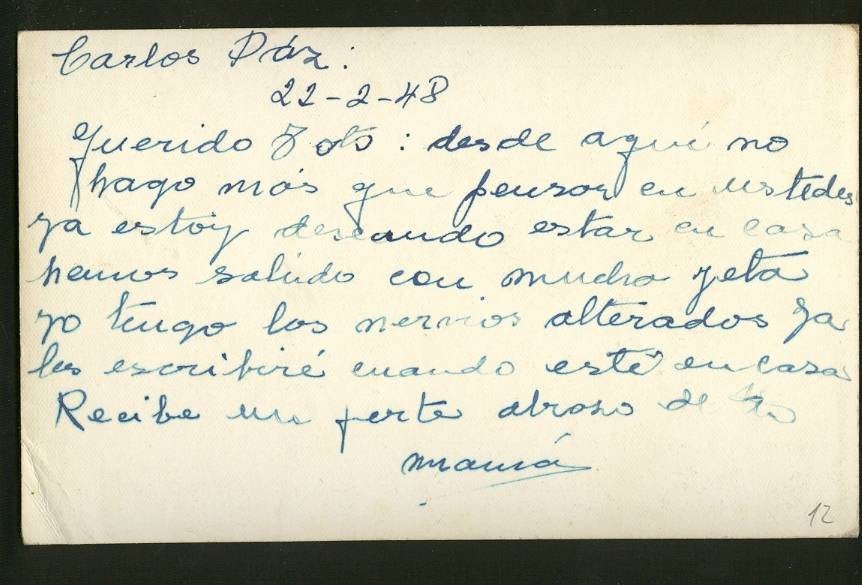 Carlos Páz:
22-2-48
Querido Toto: desde aquí no
hago más que pensar en ustedes
ya estoy deseando estar en casa
hemos salido con mucho yeta
yo tengo los nervios alterados ya
les escribiré cuando esté en casa
Recibe un ferte abraso de tu
mamá
12